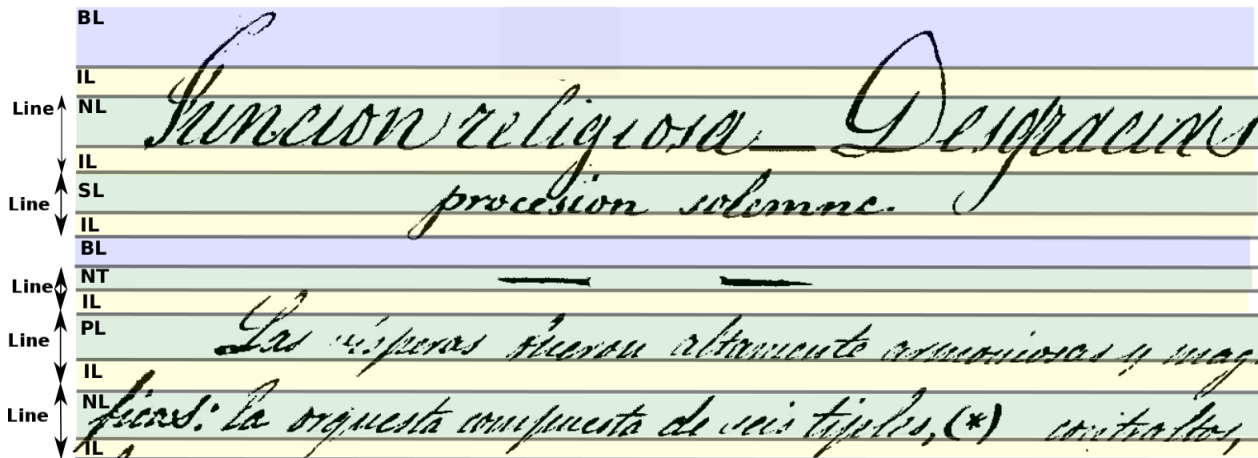 BL
IL
Line NL Funcion religiosa — Desgracias
IL
Line SL procesion solemne.
IL
BL
Line NT — —
IL
Line PL Las vísperas fueron altamente armoniosas y mag
IL
Line NL ficas: la orquesta compuesta de seis tipeles, (*) contraltos,
IL